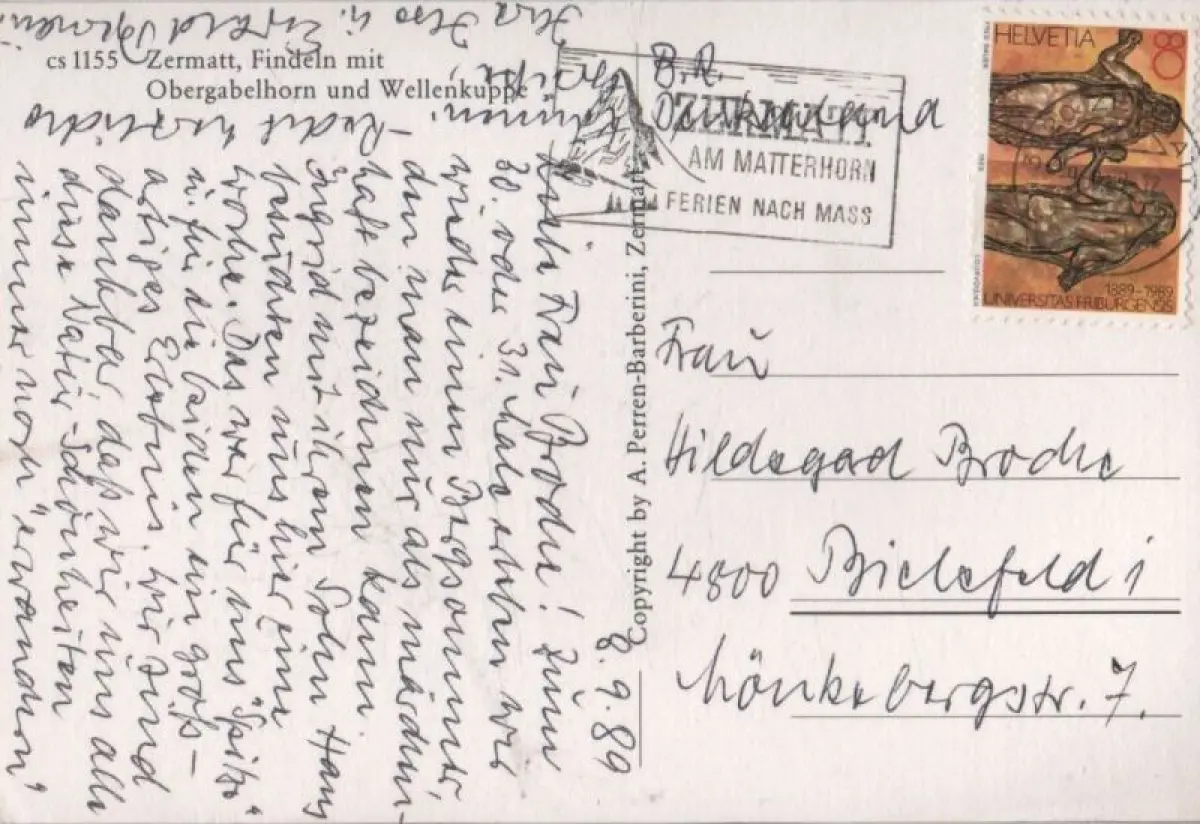 cs 1155 Zermatt, Findeln mit
Obergabelhorn und Wellenkuppe
Copyright by A. Perren-Barberini, Zermatt
8.9.89
Liebe Frau Brodke! Zum
30. oder 31. Male erleben wir
wieder einen Bergsommer,
den man nur als märchen-
haft bezeichnen kann.
Ingrid mit ihrem Sohn Hans
besuchten uns hier eine
Woche. Das war für uns "Spitze"
u. für die beiden ein groß-
artiges Erlebnis. Wir sind
dankbar, daß wir uns alle
diese Natur-Schönheiten
immer noch "erwandern"
können. - Recht herzliche
Grüße,
Ihre Ilse u. Ewald
ZERMATT
AM MATTERHORN
FERIEN NACH MASS
HELVETIA 80
1889-1989
UNIVERSITAS FRIBURGENSIS
B.R.
Deutschland
Frau
Hildegard Brodke
4800 Bielefeld 1
Mönkebergstr. 7.